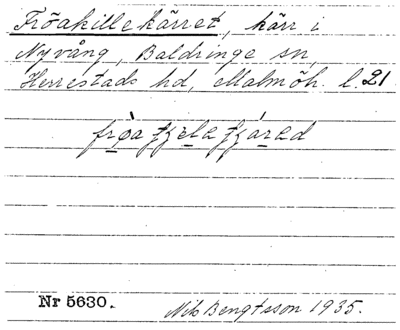 Fröakillekärret, kärr i
Nyvång, Baldringe sn,
Herrestads hd, Malmöh. l. 21
frǫa tjela tjärad
Nr 5630.
Nils Bengtsson 1935.